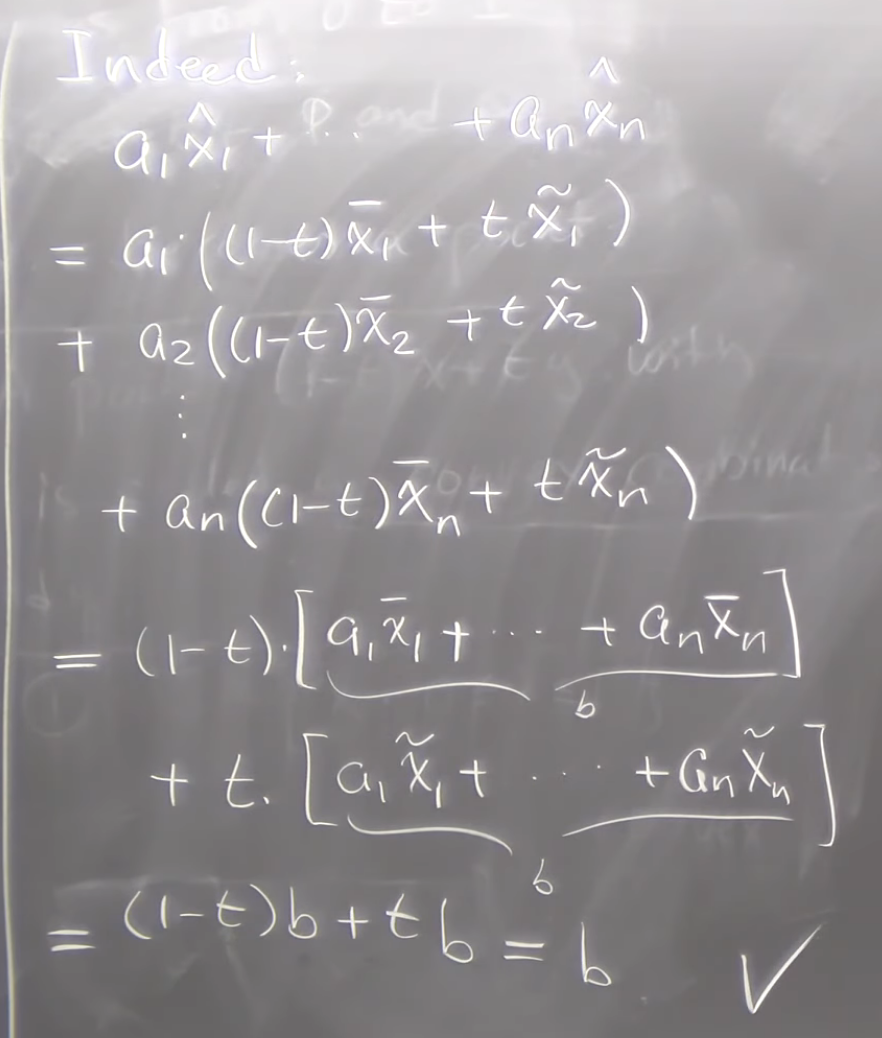 Indeed:
a₁x̂₁ + ... + aₙx̂ₙ
= a₁((1-t)x̄₁ + t x̃₁)
+ a₂((1-t)x̄₂ + t x̃₂)
⋮
+ aₙ((1-t)x̄ₙ + t x̃ₙ)
= (1-t)·[a₁x̄₁ + ... + aₙx̄ₙ]
b
+ t·[a₁x̃₁ + .... + aₙx̃ₙ]
b
= (1-t)b + tb = b ✓